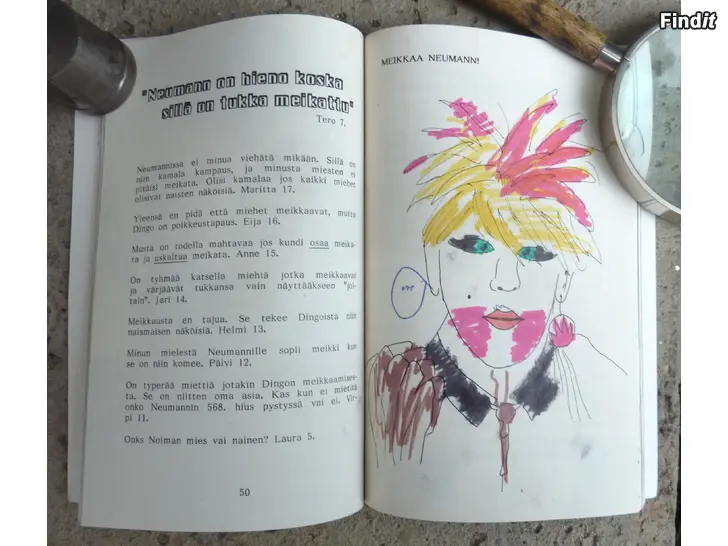 Findit
"Neumann on hieno koska
sillä on tukka meikattu"
Tero 7.
Neumannissa ei minua viehätä mikään. Sillä on
niin kamala kampaus, ja minusta miesten ei
pitäisi meikata. Olisi kamalaa jos kaikki miehet
olisivat naisten näköisiä. Maritta 17.
Yleensä en pidä että miehet meikkaavat, mutta
Dingo on poikkeustapaus. Eija 16.
Musta on todella mahtavaa jos kundi osaa meika-
ta ja uskaltaa meikata. Anne 15.
On tyhmää katsella miehiä jotka meikkaavat
ja värjäävät tukkansa vain näyttääkseen "joi-
tain". Jari 14.
Meikkausta en tajua. Se tekee Dingoista niin
naismaisen näköisiä. Helmi 13.
Minun mielestä Neumannille sopii meikki kun
se on niin komee. Päivi 12.
On typerää miettiä jotakin Dingon meikkaamises-
ta. Se on niitten oma asia. Kas kun ei mietitä
onko Neumannin 568. hius pystyssä vai ei. Vir-
pi 11.
Onks Noiman mies vai nainen? Laura 5.
50
MEIKKAA NEUMANN!